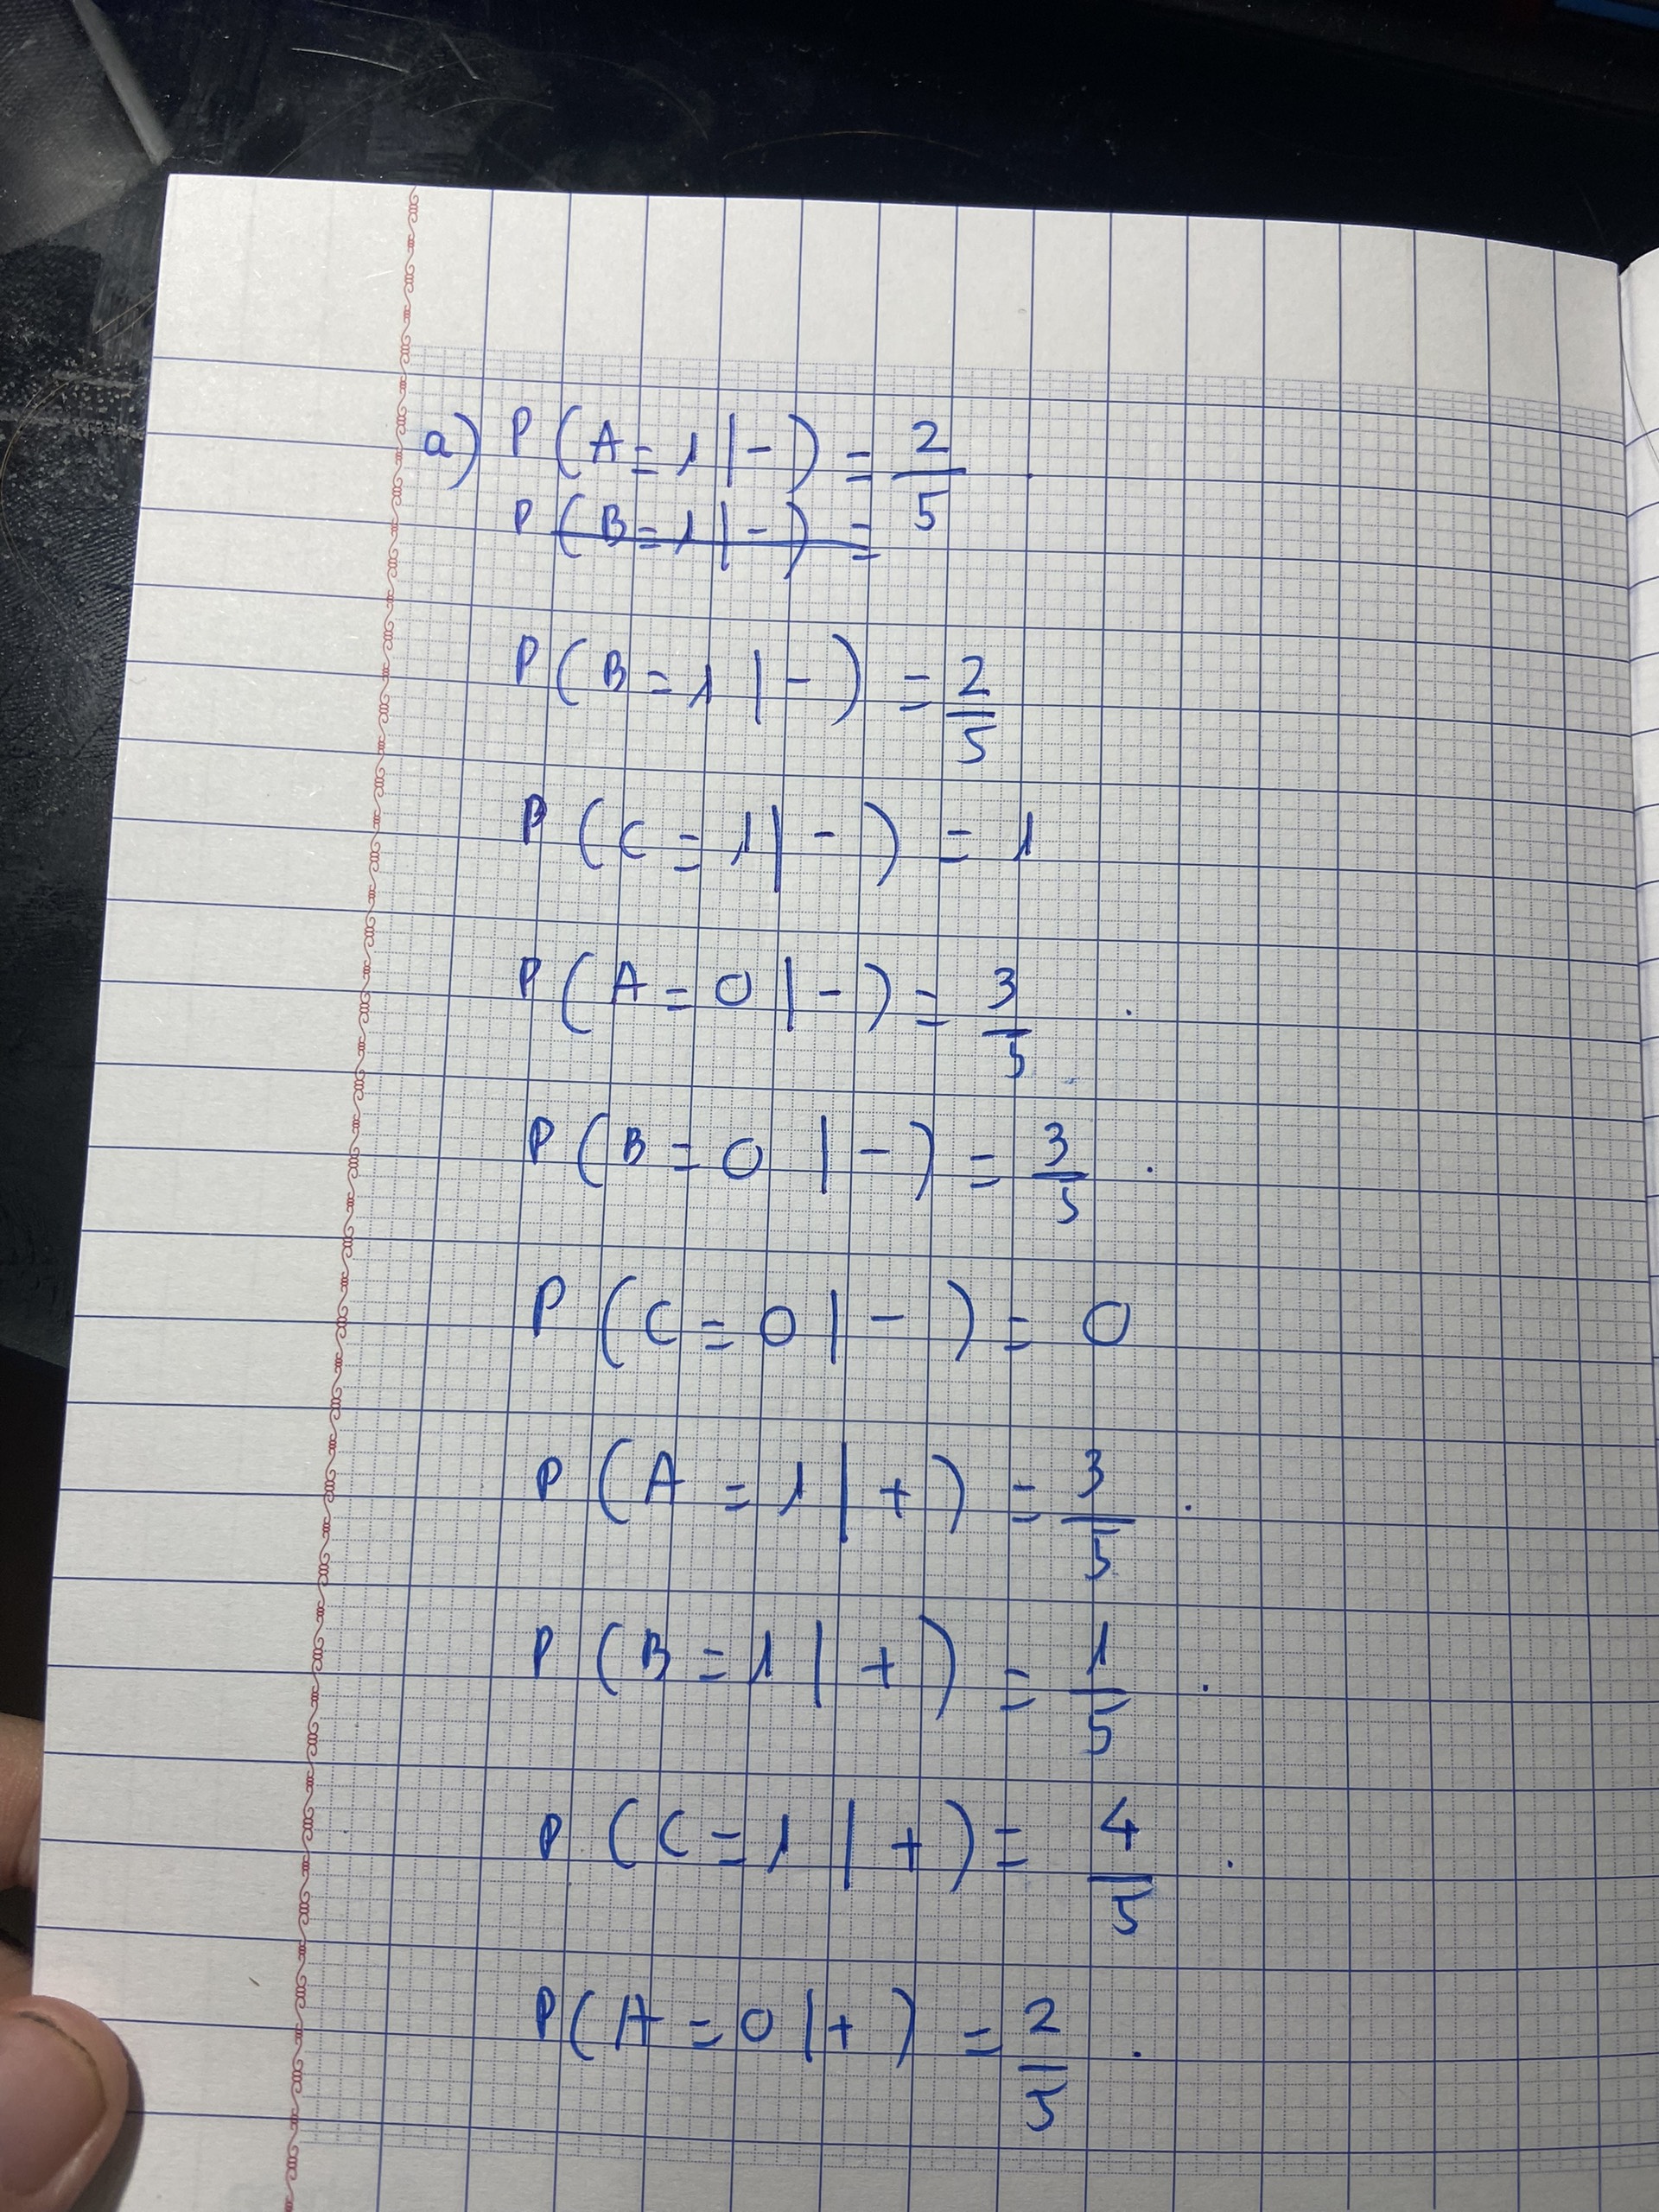 a) P(A=1|-) = 2/5
P(B=1|-) =
P(B=1|-) = 2/5
P(C=1|-) = 1
P(A=0|-) = 3/5.
P(B=0|-) = 3/5.
P(C=0|-) = 0
P(A=1|+) = 3/5.
P(B=1|+) = 1/5.
P(C=1|+) = 4/5.
P(A=0|+) = 2/5.